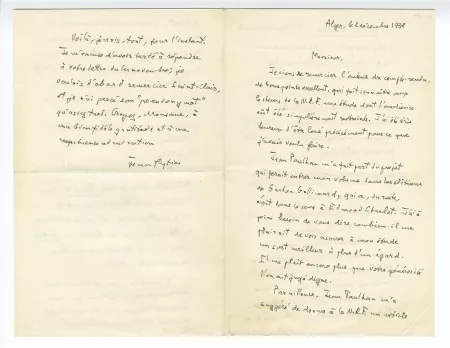 Alger, le 6 décembre 1938
Monsieur,
Je viens de remercier l'auteur du compte-rendu,
de tous points excellent, qui fait connaître aux
lecteurs de la N.R.F. une étude dont l'audience
eût été singulièrement restreinte. J'ai été très
heureux d'être loué précisément pour ce que
j'avais voulu faire.
Jean Paulhan m'a fait part du projet
qui ferait entrer mon volume dans les éditions
de Gaston Gallimard, qui a, du reste,
écrit dans ce sens à Edmond Charlot. J'ai à
peine besoin de vous dire combien il me
plairait de voir assurer à mon étude
un sort meilleur à plus d'un égard.
Il me plaît encore plus que votre générosité
l'en ait jugé digne.
Par ailleurs, Jean Paulhan m'a
suggéré de donner à la N.R.F. un article
Voilà, je crois, tout, pour l'instant.
Je m'excuse d'avoir tardé à répondre
à votre lettre du novembre, je
voulais d'abord remercier
et je n'ai pensé son "prendre y moi"
qu'assez tard. Croyez, Monsieur, à
ma bien fidèle gratitude et à ma
respectueuse admiration